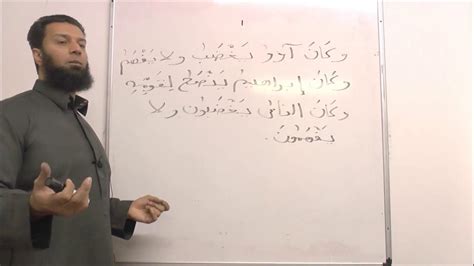 ١
وكَانَ آزرُ يَغْضَبُ ولا يَفْهَمُ
وكَانَ إبراهيمُ يَنْصَحُ لِقَوْمِهِ
وكَانَ النَّاسُ يَغْضَبُونَ ولا
يَفْهَمُونَ.